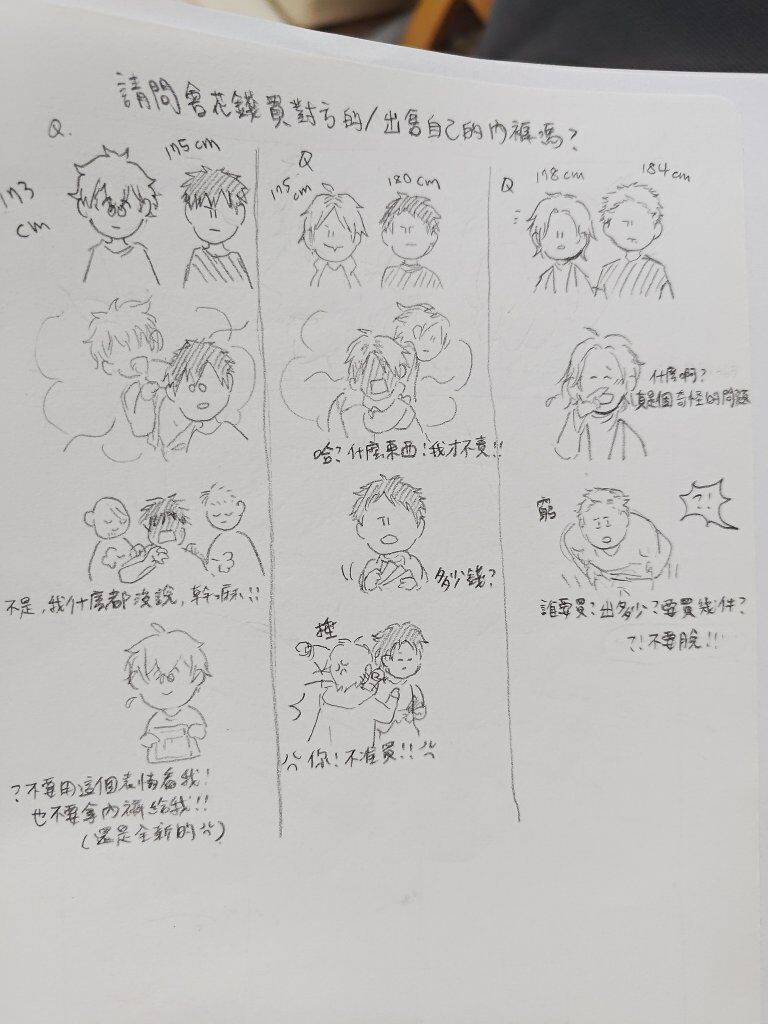 請問會花錢買對方的/出售自己的內褲嗎?
Q.
173
cm
175cm
不是,我什麼都沒說,幹嘛!!
?不要用這個表情看我!
也不要拿內褲給我!!
(還是全新的
Q
175
cm
180cm
哈?什麼東西!我才不賣!!
多少錢?
捶
你!不准買!!
Q
178cm
184cm
什麼啊?
真是個奇怪的問題
窮
?!
誰要買?出多少?要買幾件?
?!不要脫!!